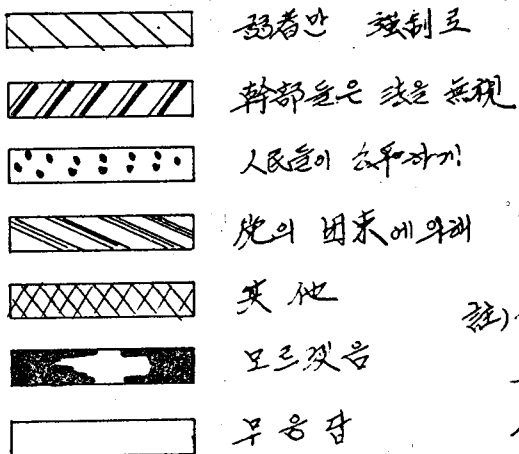 弱者만 强制로
幹部들은 法을 無視
人民들이 合和하기
党의 団束에 의해
其他
모르겠음
무응답
註)